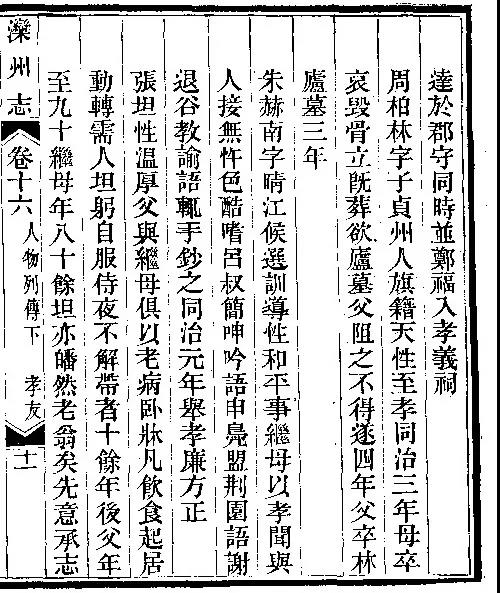 達於郡守同時並鄭福入孝義祠
周柏林字子貞州人旗籍天性至孝同治三年母卒
哀毀骨立旣葬欲廬墓父阻之不得遂四年父卒林
廬墓三年
朱赫南字晴江候選訓導性和平事繼母以孝聞與
人接無忤色酷嗜呂叔簡呻吟語申鳧盟荆園語謝
退谷教諭語輒手鈔之同治元年舉孝廉方正
張坦性溫厚父與繼母俱以老病卧牀凡飲食起居
動轉需人坦躬自服侍夜不解帶者十餘年後父年
至九十繼母年八十餘坦亦皤然老翁矣先意承志
灤州志
卷十六
人物列傳下
孝友
十一